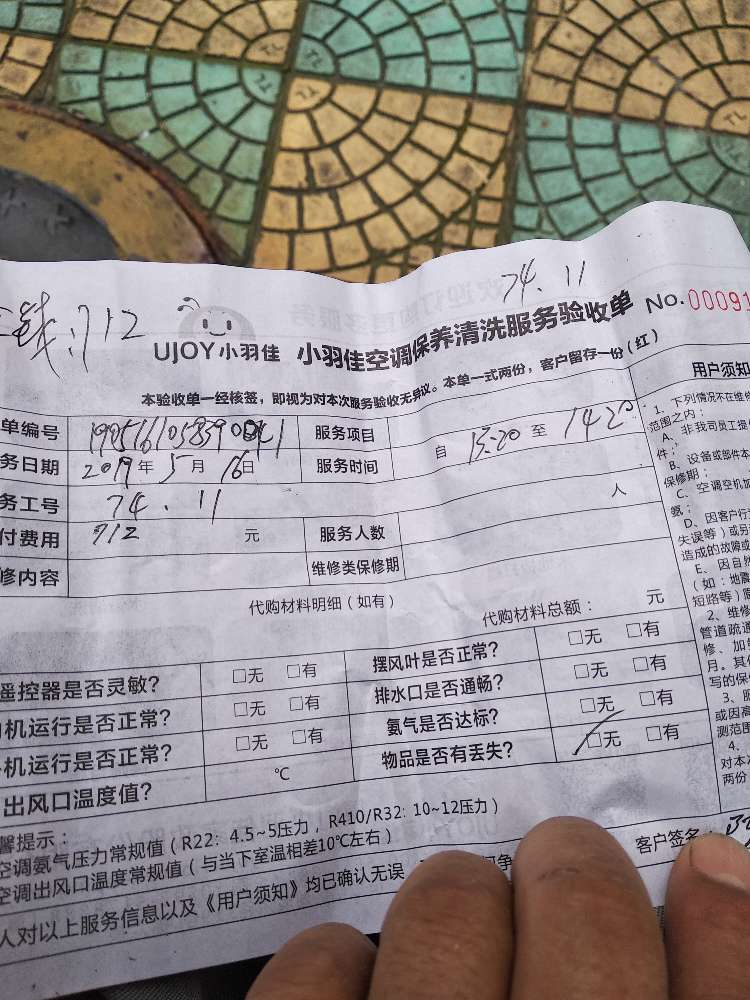 74.11
:712
UJOY小羽佳 小羽佳空调保养清洗服务验收单 No.00091
本验收单一经核签，即视为对本次服务验收无异议。本单一式两份，客户留存一份（红）
单编号 服务项目
务日期 2019年5月16日 服务时间 自 13:20 至 14:20
务工号 74.11
付费用 712 元 服务人数 人
修内容 维修类保修期
代购材料明细（如有）
代购材料总额： 元
遥控器是否灵敏？ □无 □有 摆风叶是否正常？ □无 □有
机运行是否正常？ □无 □有 排水口是否通畅？ □无 □有
机运行是否正常？ □无 □有 氨气是否达标？ □无 □有
出风口温度值？ ℃ 物品是否有丢失？ □无 □有
馨提示：
空调氨气压力常规值（R22：4.5~5压力，R410/R32：10~12压力）
空调出风口温度常规值（与当下室温相差10℃左右）
人对以上服务信息以及《用户须知》均已确认无误
客户签名：
用户须知
1、下列情况不在维修
范围之内：
A、非我司员工提供
件；
B、设备或部件本
保修期；
C、空调空机加
氨；
D、因客户行为
失误等）或另
造成的故障或
E、因自然
（如：地震
短路等）
2、维修
管道疏通
修、加氨
月。其他
写的保修
3、
或因高
测范围
4、
对本次
两份